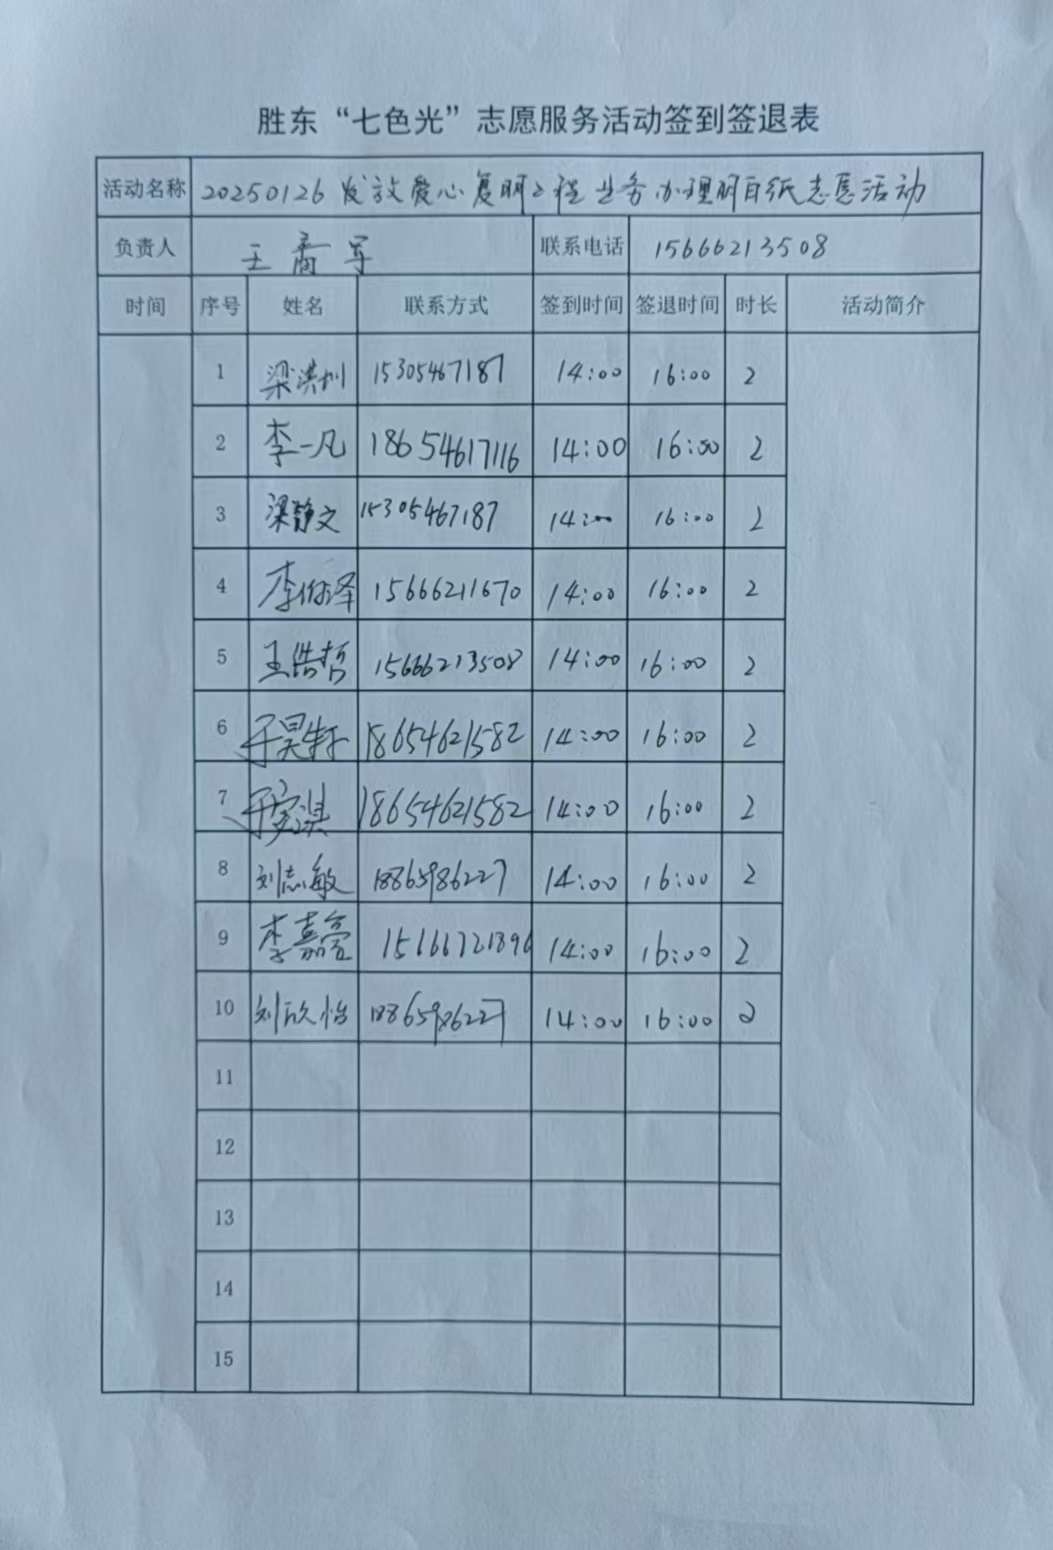 胜东“七色光”志愿服务活动签到签退表
活动名称 20250126发放爱心复明工程业务办理明白纸志愿活动
负责人 王 军 联系电话 15666213508
时间 序号 姓名 联系方式 签到时间 签退时间 时长 活动简介
1 梁洪州 15305467187 14:00 16:00 2
2 李一凡 18654617116 14:00 16:00 2
3 梁静文 15305467187 14:00 16:00 2
4 李 泽 15666211670 14:00 16:00 2
5 王浩哲 15666213508 14:00 16:00 2
6 于昊轩 18654621582 14:00 16:00 2
7 于 淇 18654621582 14:00 16:00 2
8 刘志敏 18865986227 14:00 16:00 2
9 李嘉萱 14:00 16:00 2
10 刘欣怡 18865986227 14:00 16:00 2
11
12
13
14
15